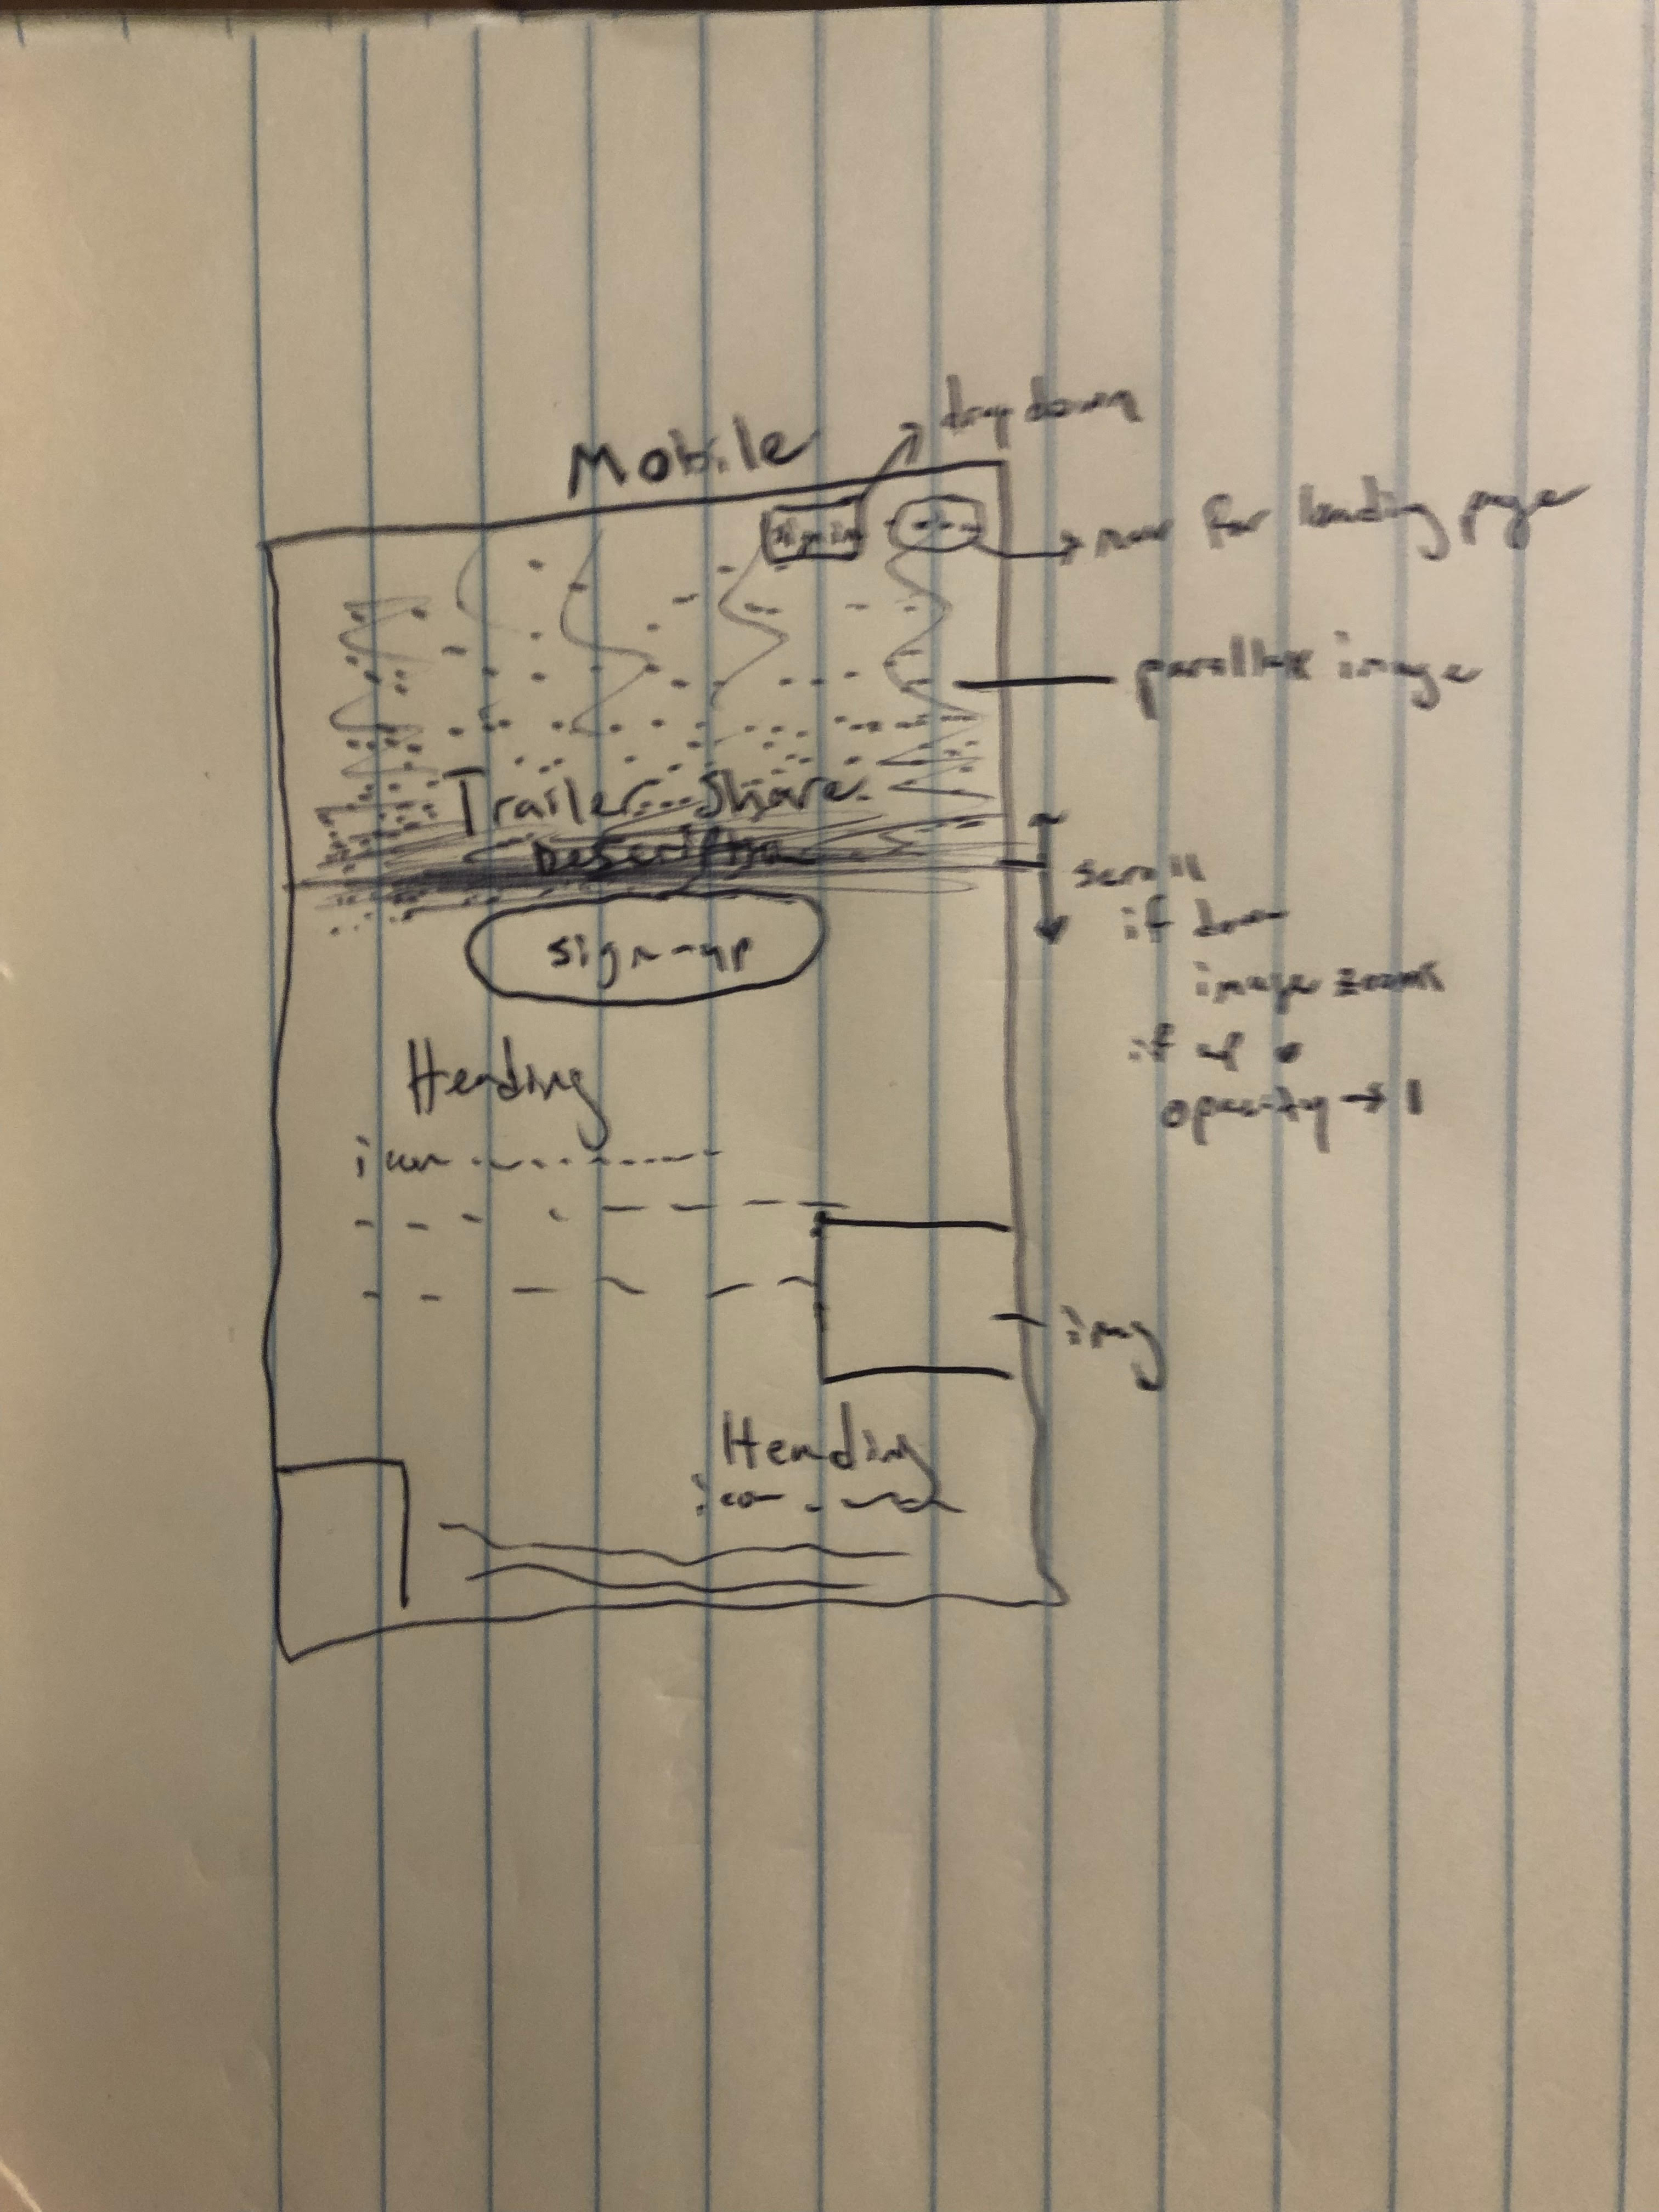 Mobile
drop down
Sign in
nav for landing page
parallax image
Trailer Share
Description
scroll
if down
image zooms
if up
opacity → 1
sign-up
Heading
icon
img
Heading
icon